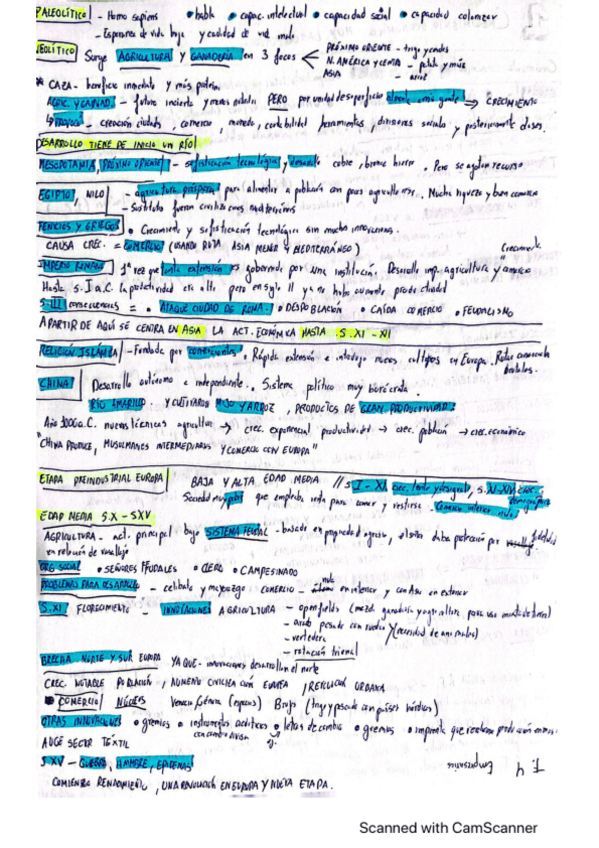 PALEOLÍTICO - Homo sapiens • habla • capac. intelectual • capacidad social • capacidad colonizar
- Esperanza de vida baja y calidad de vida mala
NEOLÍTICO Surge AGRICULTURA Y GANADERÍA en 3 focos
PRÓXIMO ORIENTE - trigo y
N. AMÉRICA Y CENTRAL - patata y maíz
ASIA - arroz
* CAZA - beneficio inmediato y más
AGRIC. Y GANAD. - futuro incierto y menos PERO por unidad de superficie gente ⇒ CRECIMIENTO
↳ PROVOCÓ - creación ciudades, comercio, moneda, contabilidad herramientas, divisiones sociales y posteriormente clases.
DESARROLLO TIENE DE INICIO UN RÍO
MESOPOTAMIA, PRÓXIMO ORIENTE - sofisticación tecnológica, usando cobre, bronce hierro. Pero se agotan recursos
EGIPTO, NILO - agricultura próspera para alimentar a población con pocos agricultores. Mucha riqueza y buen comercio
- Sustituto fueron civilizaciones mediterráneas
FENICIOS Y GRIEGOS • Crecimiento y sofisticación tecnológica sin mucha innovaciones.
CAUSA CREC. = COMERCIO (USANDO RUTA ASIA MENOR Y MEDITERRÁNEO)
IMPERIO ROMANO 1ª vez que tanta extensión es gobernada por una institución. Desarrollo imp. agricultura y comercio
Hasta S. I a.C. la productividad era alta pero en siglo II ya no hubo productividad
S. III consecuencias = • ATAQUE CIUDAD DE ROMA. • DESPOBLACIÓN • CAÍDA COMERCIO • FEUDALISMO
A PARTIR DE AQUÍ SE CENTRA EN ASIA LA ACT. ECONÓMICA HASTA S. XI - XII
RELIGIÓN ISLÁMICA - Fundada por comerciantes • Rápida extensión e introdujo nuevos cultivos en Europa.
CHINA Desarrollo autónomo e independiente. Sistema político muy burócrata.
RÍO AMARILLO, Y CULTIVAROS MIJO Y ARROZ, PRODUCTOS DE GRAN PRODUCTIVIDAD.
Año 1000 a.C. nuevas técnicas agricultura → crec. exponencial productividad → crec. población → crec. económico
"CHINA PRODUCE, MUSULMANES INTERMEDIARIOS Y COMERCIO CON EUROPA"
ETAPA PREINDUSTRIAL EUROPA BAJA Y ALTA EDAD MEDIA // S I - XI crec. lento y desigual, S. XI-XIV crec.
Sociedad muy pobre que empleaba renta para comer y vestirse. Comercio interior nulo
EDAD MEDIA S.X - SXV
AGRICULTURA - act. principal bajo SISTEMA FEUDAL - basado en propiedad agraria, el señor daba protección por fidelidad
en relación de vasallaje
ORG SOCIAL • SEÑORES FEUDALES • CLERO • CAMPESINADO
PROBLEMAS PARA DESARROLLO - celibato y mayorazgo COMERCIO - nulo en interior y con Asia en exterior
S.XI FLORECIMIENTO - INNOVACIONES AGRICULTURA - openfields
- arado pesado con ruedas (necesidad de animales)
- vertedera
- rotación trienal
BRECHA NORTE Y SUR EUROPA YA QUE - innovaciones desarrollan el norte
CREC. NOTABLE POBLACIÓN, AUMENTO CIUDADES CON , REVOLUCIÓN URBANA
• COMERCIO NÚCLEOS Venecia, Génova (especias) Brujas
OTRAS INNOVACIONES • gremios • instrumentos • letras de cambio • gremios • imprenta que
AUGE SECTOR TEXTIL
S XV - GUERRA, HAMBRE, EPIDEMIAS
COMIENZO RENDIMIENTO, UNA REVOLUCIÓN EN EUROPA Y NUEVA ETAPA.
T. 4
Scanned with CamScanner